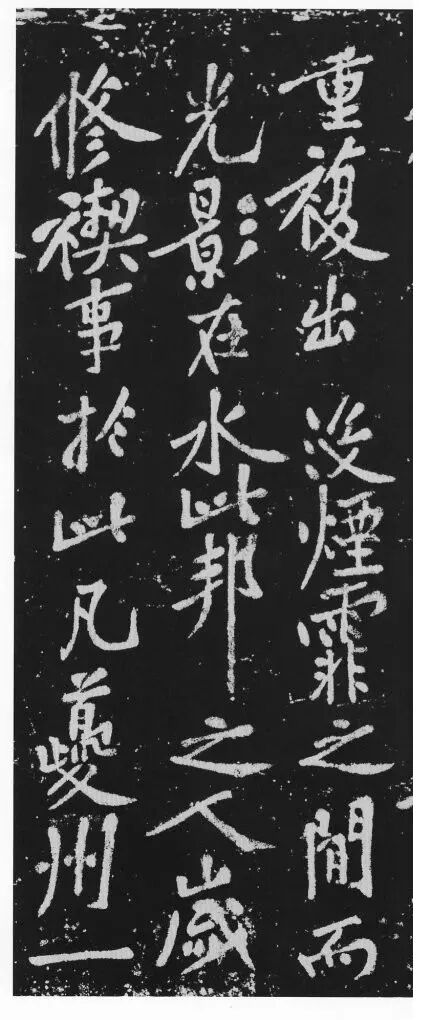 重複出沒煙霏之間而
光影在水此邦之人歲
修禊事於此凡夔州一